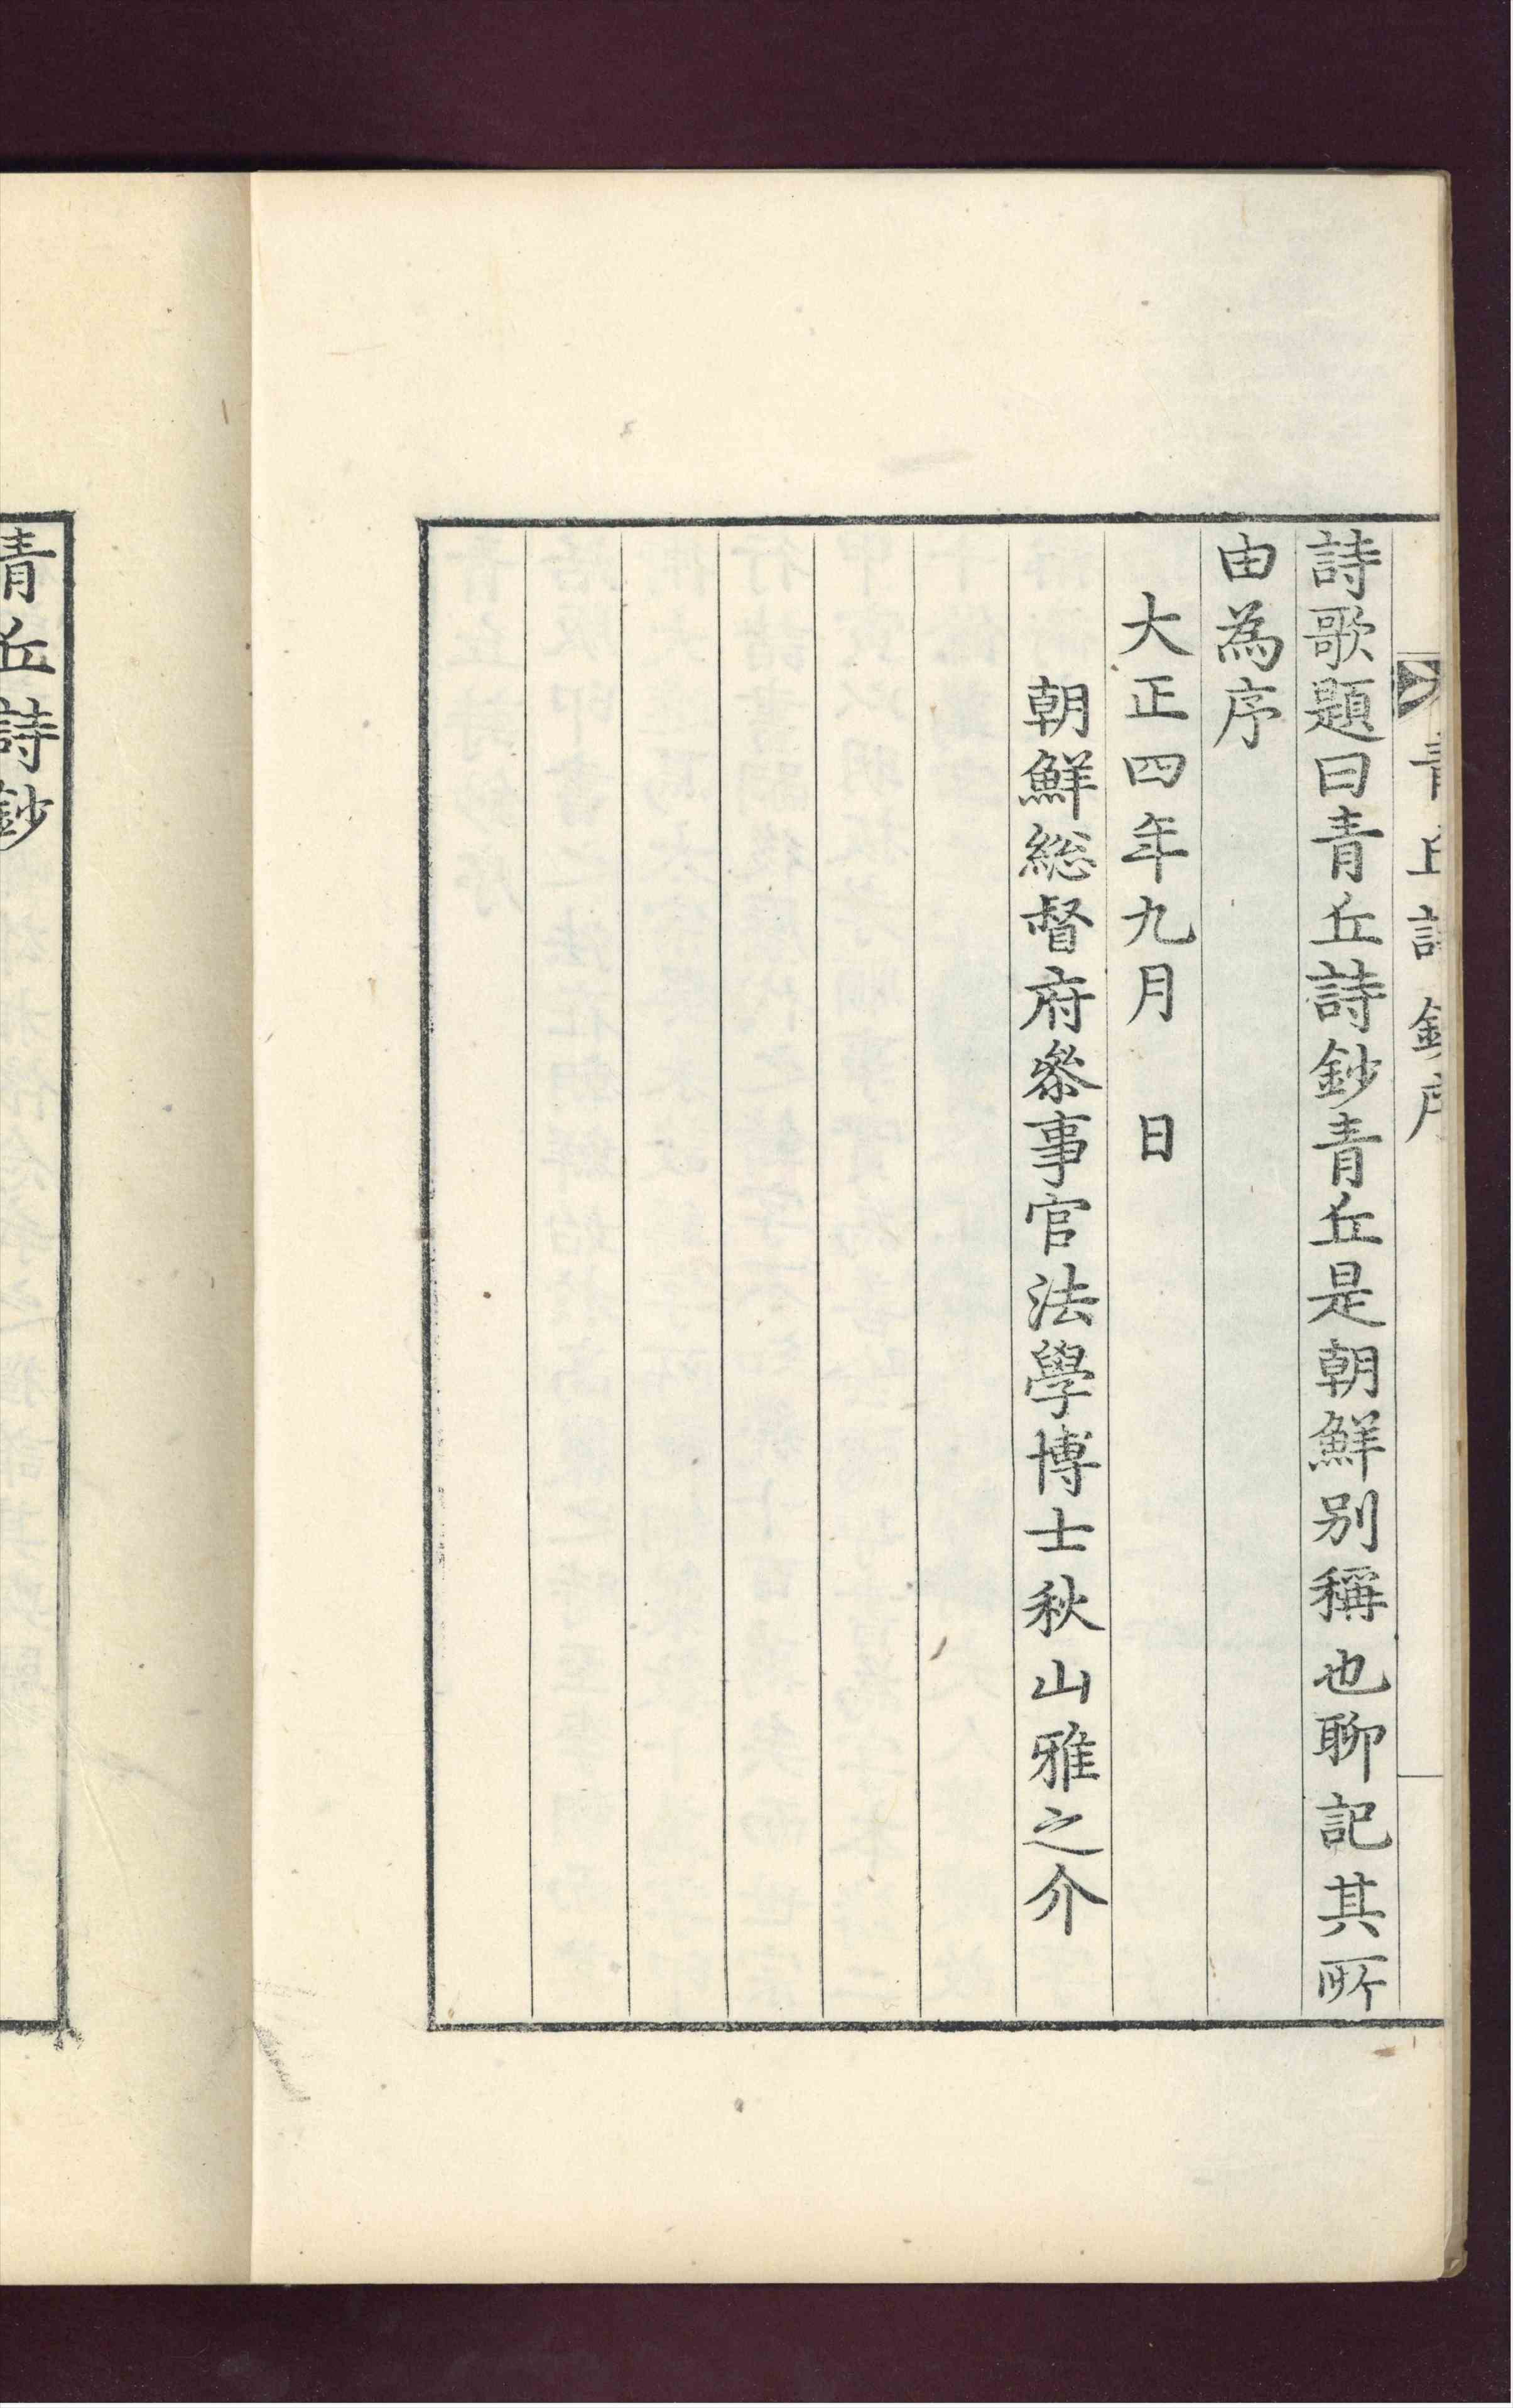 青丘詩鈔序
詩歌題曰青丘詩鈔青丘是朝鮮別稱也聊記其所
由為序
大正四年九月　日
朝鮮総督府叅事官法學博士秋山雅之介
青丘詩鈔